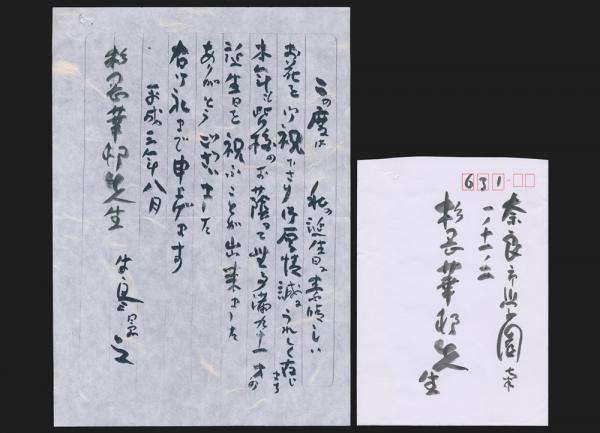 この度は 私の誕生日に素晴しい
お花を御祝下さり御厚情誠にうれしく存じ
本年も皆様のお蔭で無事満九十一才の
誕生日を祝ふことが出来ました
ありがとうございました
右御礼まで申上げます
平成三年八月
杉岡華邨先生
631
奈良市学園
杉岡華邨先生